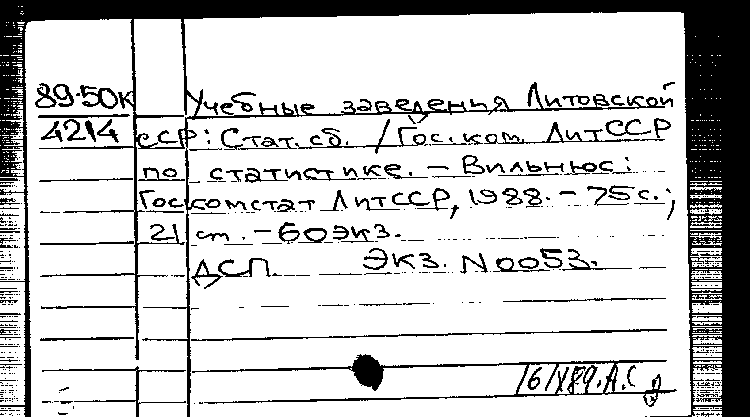 89-50к Учебные заведения Литовской
4214 ССР: Стат. сб. / Гос. ком. ЛитССР
по статистике. – Вильнюс:
Госкомстат ЛитССР, 1988. – 75 с.;
21 см. – 60 экз.
ДСП. Экз. N 0053.